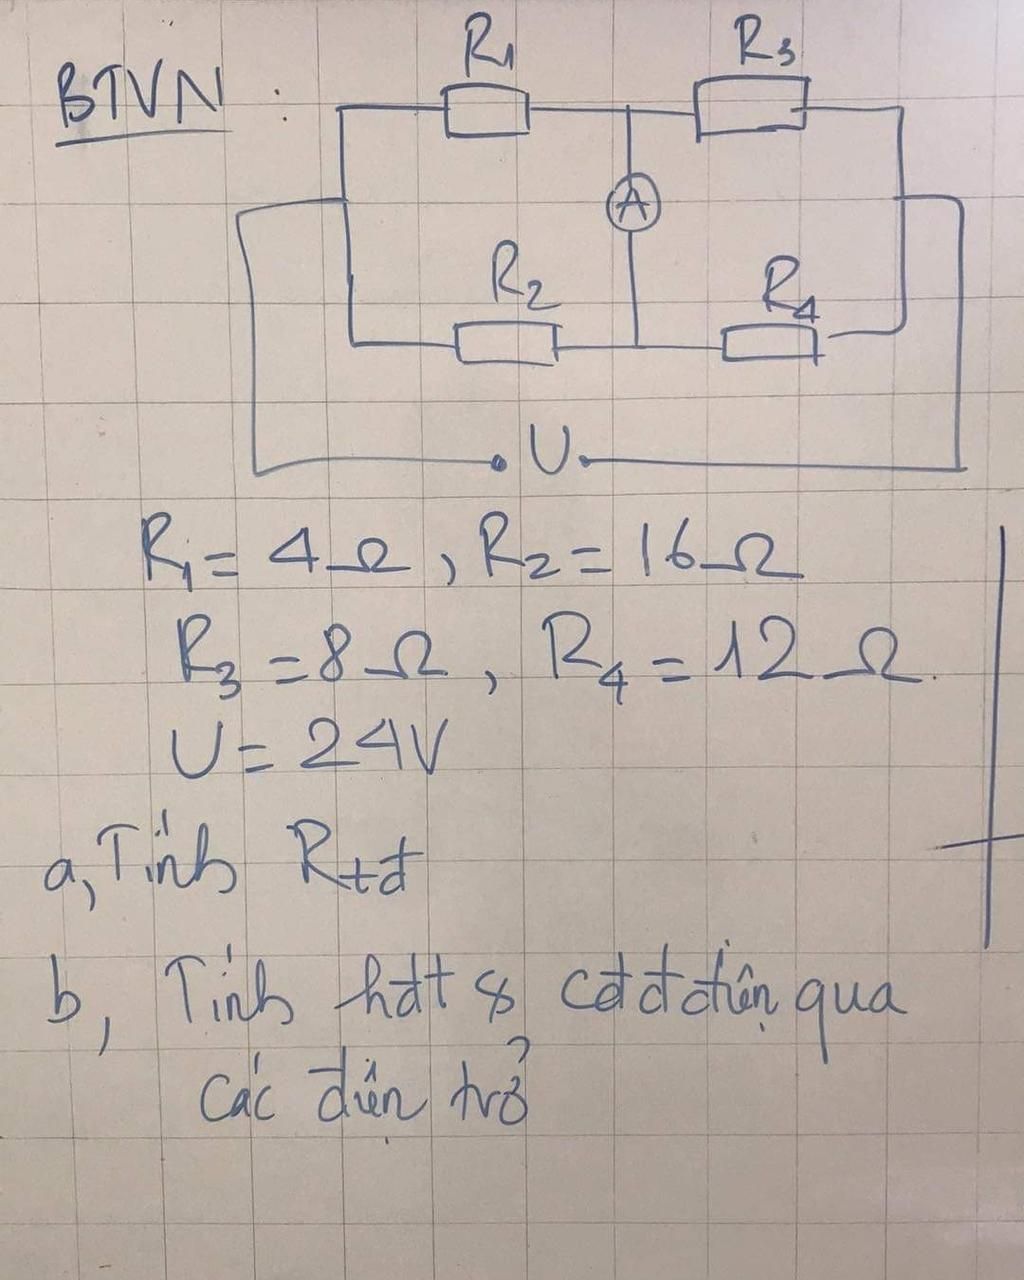 BTVN :
R₁ R₃
A
R₂ R₄
U
R₁ = 4Ω, R₂ = 16Ω
R₃ = 8Ω, R₄ = 12Ω.
U = 24V
a, Tính Rtđ
b, Tính hđt & cđdđiện qua
các điện trở